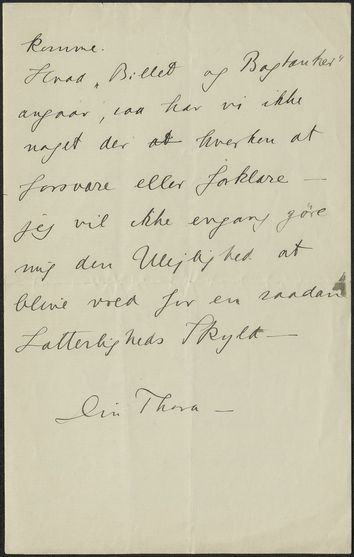 komme.
Hvad „Billet og Bagtanker"
angaar, saa har vi ikke
noget der at hverken at
forsvare eller forklare –
jeg vil ikke engang gøre
mig den Ulejlighed at
blive vred for en saadan
Latterligheds Skyld –
Din Thora –